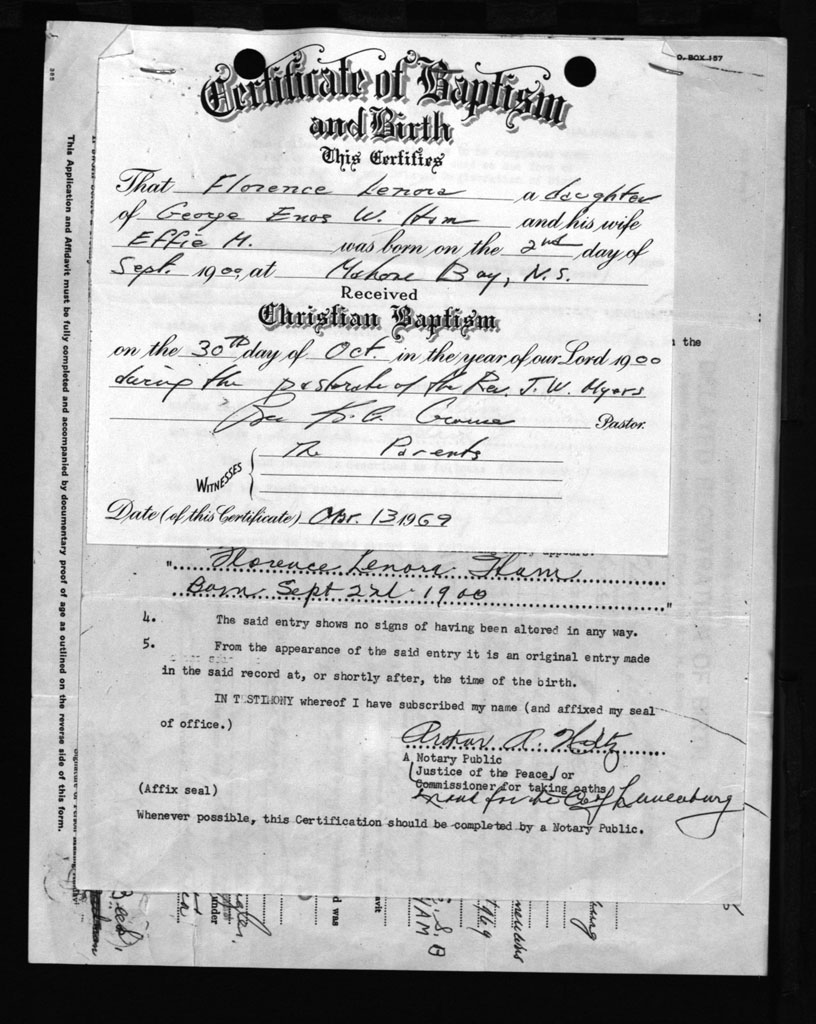 O. BOX 157
Certificate of Baptism
and Birth
This Certifies
That Florence Lenora a daughter
of George Enos W. Ham and his wife
Effie M. was born on the 2nd day of
Sept. 1900, at Mahone Bay, N.S.
Received
Christian Baptism
on the 30TH day of Oct. in the year of our Lord 1900
during the pastorate of the Rev. J. W. Myers
Pastor.
WITNESSES The Parents
Date (of this Certificate) Apr. 13 1969
the
"Florence Lenora Ham
Born Sept 2nd 1900"
4. The said entry shows no signs of having been altered in any way.
5. From the appearance of the said entry it is an original entry made
in the said record at, or shortly after, the time of the birth.
IN TESTIMONY whereof I have subscribed my name (and affixed my seal
of office.)
A Notary Public
(Justice of the Peace) or
Commissioner for taking oaths
in and for the Lunenburg
(Affix seal)
Whenever possible, this Certification should be completed by a Notary Public.
This Application and Affidavit must be fully completed and accompanied by documentary proof of age as outlined on the reverse side of this form.
under
d was
avit
1969